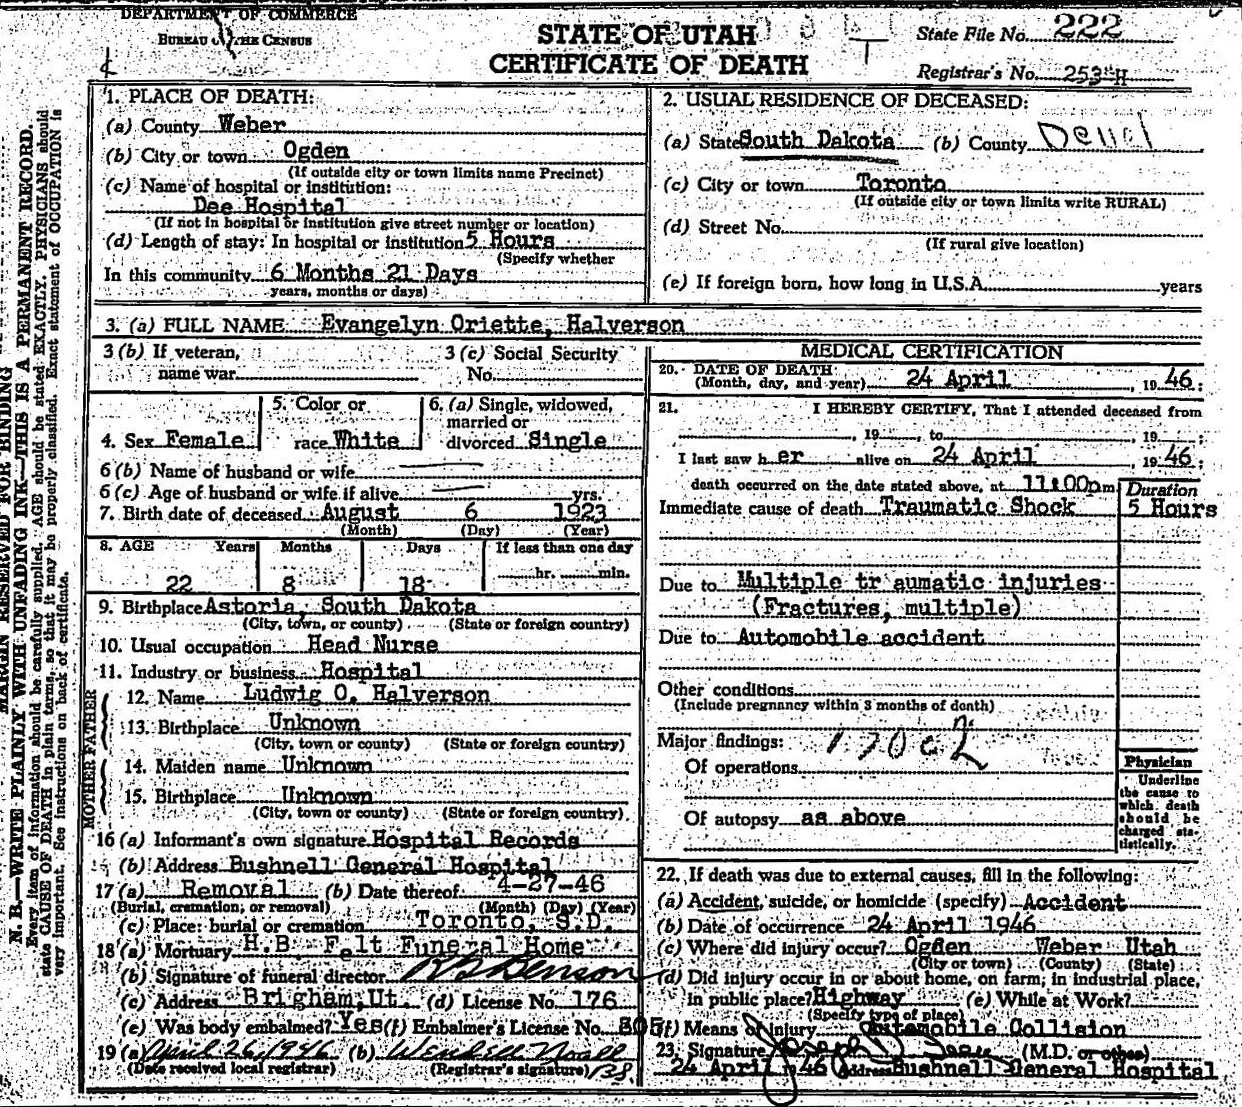 DEPARTMENT OF COMMERCE
BUREAU OF THE CENSUS
STATE OF UTAH
CERTIFICATE OF DEATH
State File No. 222
Registrar's No. 253-H
MARGIN RESERVED FOR BINDING
N. B.—WRITE PLAINLY WITH UNFADING INK—THIS IS A PERMANENT RECORD.
Every item of information should be carefully supplied. AGE should be stated EXACTLY. PHYSICIANS should
state CAUSE OF DEATH in plain terms, so that it may be properly classified. Exact statement of OCCUPATION is
very important. See instructions on back of certificate.
1. PLACE OF DEATH:
(a) County Weber
(b) City or town Ogden
(If outside city or town limits name Precinct)
(c) Name of hospital or institution:
Dee Hospital
(If not in hospital or institution give street number or location)
(d) Length of stay: In hospital or institution 5 Hours
(Specify whether
In this community 6 Months 21 Days
years, months or days)
2. USUAL RESIDENCE OF DECEASED:
(a) State South Dakota (b) County Deuel
(c) City or town Toronto
(If outside city or town limits write RURAL)
(d) Street No.
(If rural give location)
(e) If foreign born, how long in U.S.A. years
3. (a) FULL NAME Evangelyn Oriette, Halverson
3 (b) If veteran,
name war
3 (c) Social Security
No.
4. Sex Female
5. Color or
race White
6. (a) Single, widowed,
married or
divorced Single
6 (b) Name of husband or wife
6 (c) Age of husband or wife if alive yrs.
7. Birth date of deceased August 6 1923
(Month) (Day) (Year)
8. AGE Years Months Days If less than one day
22 8 18 hr. min.
9. Birthplace Astoria, South Dakota
(City, town, or county) (State or foreign country)
10. Usual occupation Head Nurse
11. Industry or business Hospital
FATHER
12. Name Ludwig O. Halverson
13. Birthplace Unknown
(City, town or county) (State or foreign country)
MOTHER
14. Maiden name Unknown
15. Birthplace Unknown
(City, town or county) (State or foreign country)
16 (a) Informant's own signature Hospital Records
(b) Address Bushnell General Hospital
17 (a) Removal (b) Date thereof 4-27-46
(Burial, cremation, or removal) (Month) (Day) (Year)
(c) Place: burial or cremation Toronto, S.D.
18 (a) Mortuary H.B. Felt Funeral Home
(b) Signature of funeral director Benson
(c) Address Brigham, Ut. (d) License No. 176
(e) Was body embalmed? Yes (f) Embalmer's License No. 305
19 (a) April 26, 1946 (b) Wendell Noall
(Date received local registrar) (Registrar's signature)
MEDICAL CERTIFICATION
20. DATE OF DEATH
(Month, day, and year) 24 April, 1946;
21. I HEREBY CERTIFY, That I attended deceased from
, 19 , to , 19 ;
I last saw her alive on 24 April, 1946;
death occurred on the date stated above, at 11:00pm
Duration
Immediate cause of death Traumatic Shock 5 Hours
Due to Multiple tr aumatic injuries
(Fractures, multiple)
Due to Automobile accident
Other conditions
(Include pregnancy within 3 months of death)
Major findings:
Of operations
Of autopsy as above
Physician
Underline
the cause to
which death
should be
charged sta-
tistically.
22. If death was due to external causes, fill in the following:
(a) Accident, suicide, or homicide (specify) Accident
(b) Date of occurrence 24 April 1946
(c) Where did injury occur? Ogden Weber Utah
(City or town) (County) (State)
(d) Did injury occur in or about home, on farm, in industrial place,
in public place? Highway (e) While at Work?
(Specify type of place)
(f) Means of injury Automobile Collision
23. Signature (M.D. or other)
24 April 1946 Address Bushnell General Hospital